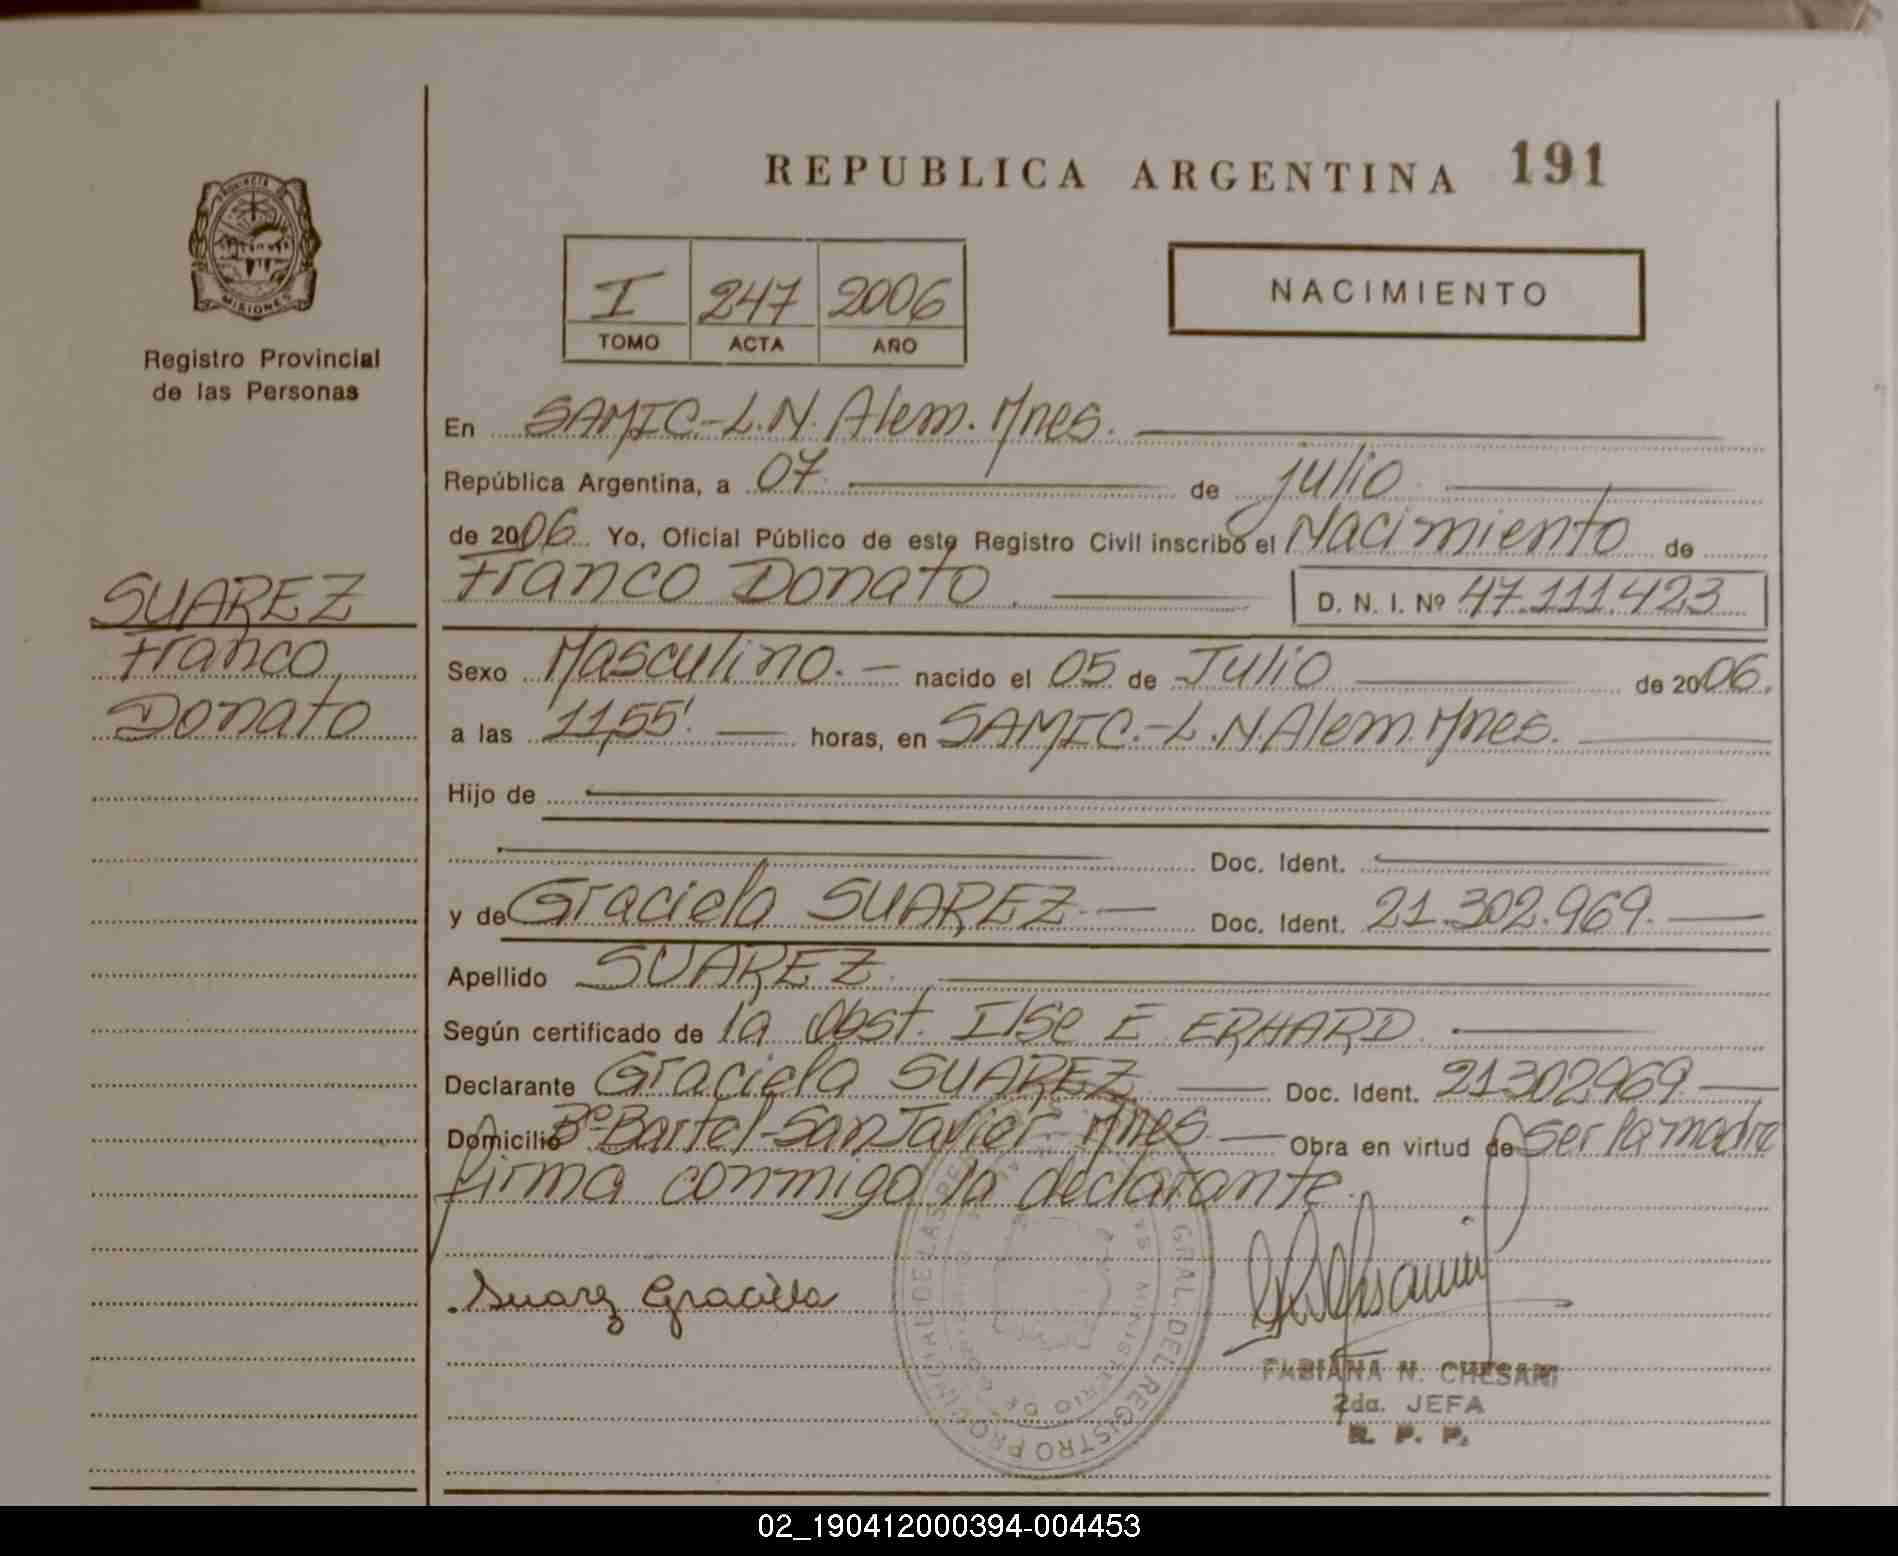 REPUBLICA ARGENTINA 191
PROVINCIA DE
MISIONES
Registro Provincial
de las Personas
I 247 2006
TOMO ACTA AÑO
NACIMIENTO
En SAMIC.-L.N. Alem. Mnes.
República Argentina, a 07 de julio
de 2006. Yo, Oficial Público de este Registro Civil inscribo el Nacimiento de
Franco Donato. D. N. I. Nº 47.111.423
SUAREZ
Franco
Donato
Sexo Masculino.- nacido el 05 de Julio de 2006.
a las 11,55'. horas, en SAMIC.-L.N.Alem.Mnes.
Hijo de
Doc. Ident.
y de Graciela SUAREZ.- Doc. Ident. 21.302.969.
Apellido SUAREZ.
Según certificado de la Obst. Ilse E. ERHARD.
Declarante Graciela SUAREZ. Doc. Ident. 21.302.969.
Domicilio Bº Bartel-San Javier-Mnes. Obra en virtud de ser la madre
firma conmigo la declarante.
Suarez Graciela
FABIANA N. CHESANI
2da. JEFA
R. P. P.
GRAL. DEL REGISTRO PROVINCIAL DE LAS
MINISTERIO DE
02_190412000394-004453